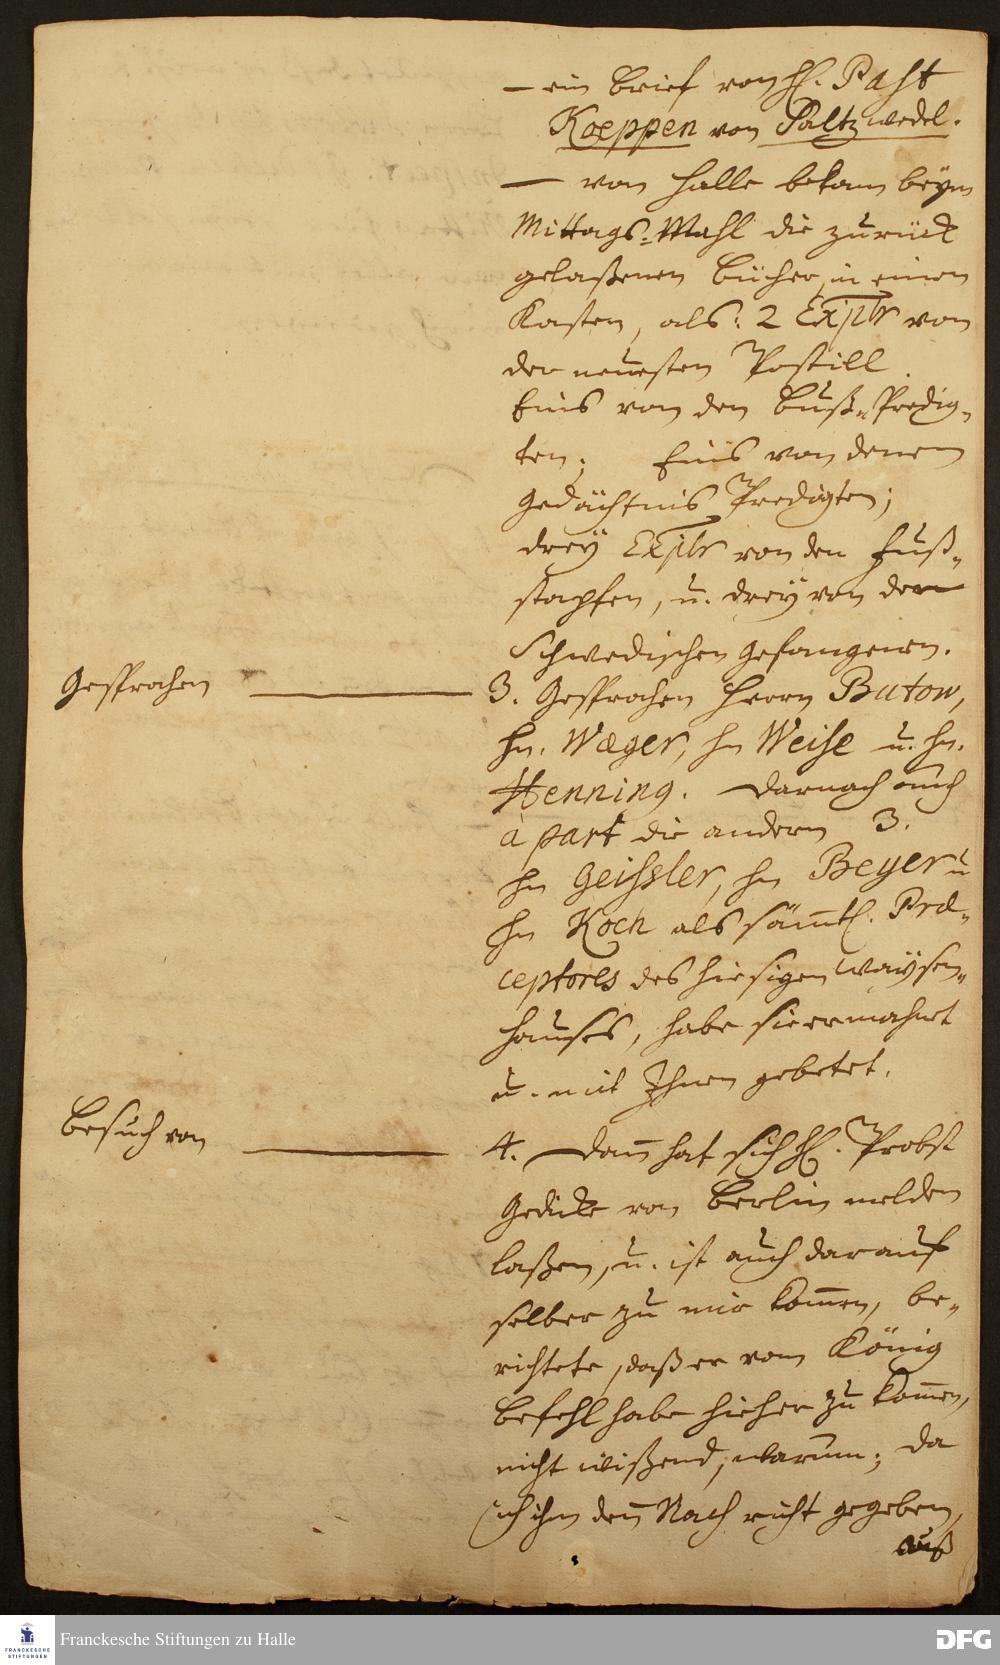 – ein brief von H. Past
Koeppen von Saltzwedel.
– von Halle bekam beym
Mittags-Mahl die zurück
gelaßenen Bücher, in einem
Kasten, als: 2 Explr von
der neuesten Postill.
Eins von den Buß-Predig-
ten; Eins von denen
Gedächtnis Predigten;
drey Explr von den Fuß-
stapfen, u. drey von den
Schwedischen Gefangenen.
Gesprochen
3. Gesprochen Herrn Butow,
Hn. Wæger, Hn Weise u. Hn.
Henning. Darnach auch
à part die andern 3.
Hn Geissler, Hn Beyer u
Hn Koch als sämtl. Præ-
ceptores des hiesigen Waysen-
hauses, habe sie ermahnt
u. mit Ihnen gebetet.
Besuch von
4. Dann hat sich H. Probst
Gedicke von Berlin melden
laßen, u. ist auch darauf
selber zu mir kommen, be-
richtete, daß er vom König
Befehl habe hieher zu kommen,
nicht wißend, warum; da
ich ihm denn Nachricht gegeben,
auß
FRANCKESCHE
STIFTUNGEN
Franckesche Stiftungen zu Halle
DFG